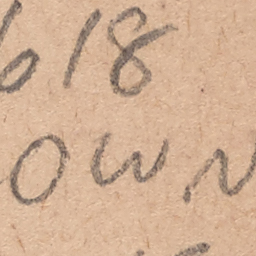 618
OW.N